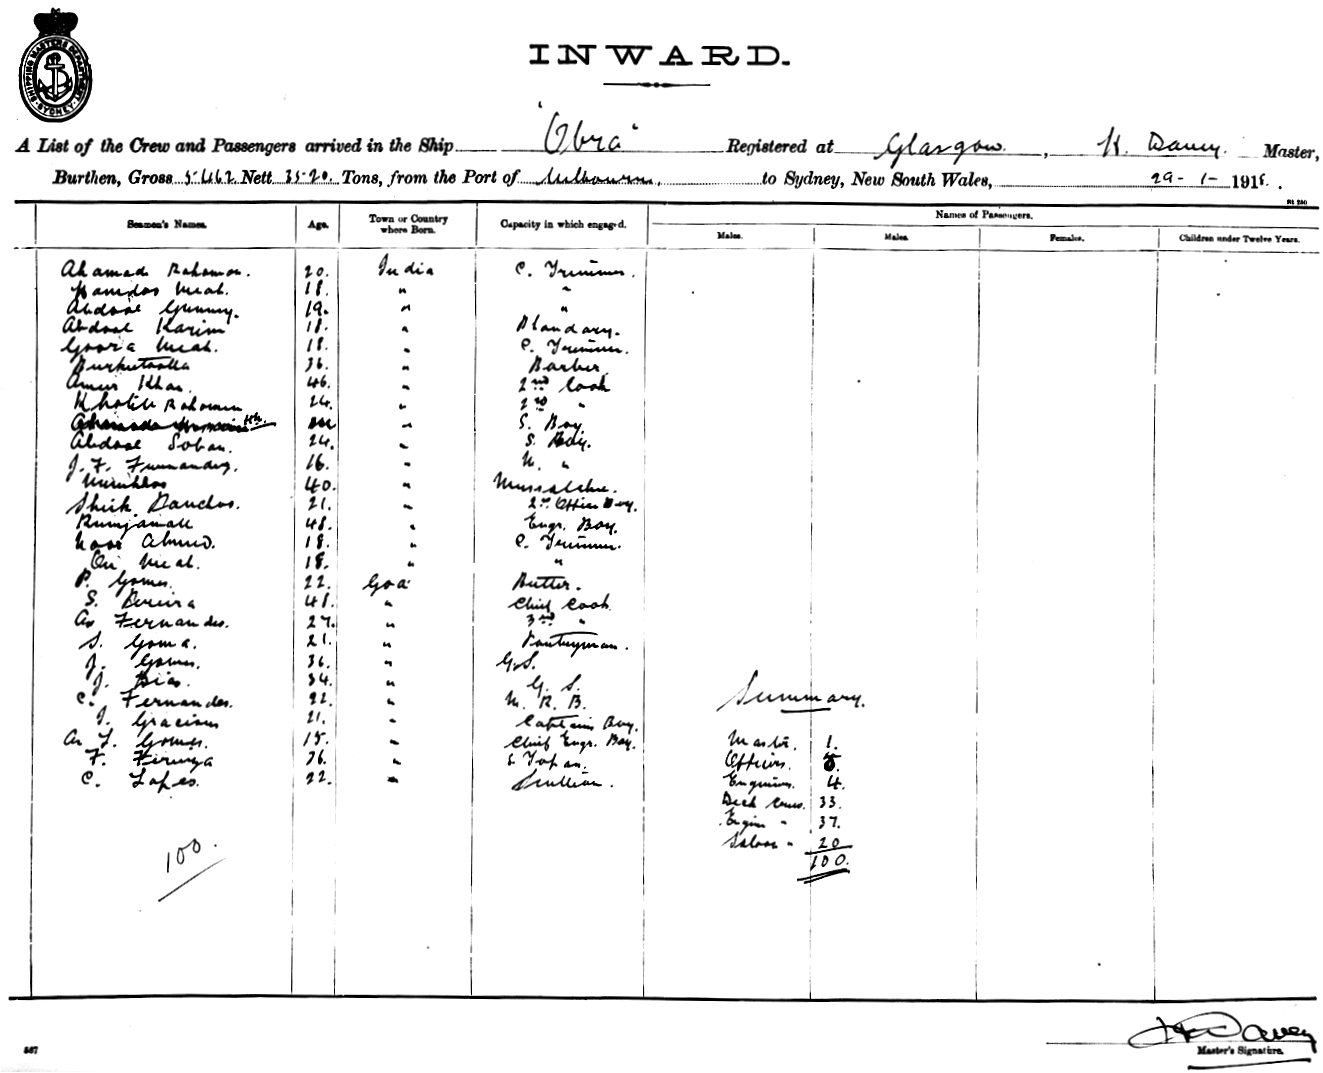 SHIPPING MASTERS DEPARTMENT SYDNEY
INWARD.
A List of the Crew and Passengers arrived in the Ship "Obra" Registered at Glasgow, H. Davey. Master,
Burthen, Gross 5462 Nett 3520. Tons, from the Port of Melbourne, to Sydney, New South Wales, 29-1-1918.
Seamen's Names. Age. Town or Country where Born. Capacity in which engaged. Names of Passengers.
Males. Males. Females. Children under Twelve Years.
Ahamad Rahaman. 20. India C. Trimmer.
Meah. 18. " "
Abdool Gunny. 19. " "
Abdool Karim 18. " Bhandary.
Goora Meah. 18. " C. Trimmer.
Burkutoolla 36. " Barber
Amir Khan. 46. " 2nd Cook
Kholil Rahaman 24. " 2nd "
" S. Boy
Abdool Soban. 24. " S. Boy.
J. F. Fernandez. 16. " M. "
40. "
Sheik 21. " 2nd Officer Boy.
Rumjanalli 48. " Engr. Boy.
Noor Ahmed. 18. " C. Trimmer.
Meah. 18. " "
P. Gomes. 22. Goa Butler.
S. Pereira 48. " Chief Cook
As Fernandes. 27. " 3rd "
S. Goma. 21. " Pantryman.
J. Gomes. 36. " G.S.
J. Dias. 34. " G. S.
C. Fernandes. 22. " M. R. B.
J. Gracious 21. " Captain Boy.
As J. Gomes. 18. " Chief Engr. Boy.
F. 36. " S. Topas.
C. Lopes. 22. " Scullion.
100.
Summary.
Master. 1.
Officers. 5.
Engineers. 4.
Deck Crew. 33.
Engine " 37.
Saloon " 20
100.
H Davey
Master's Signature.